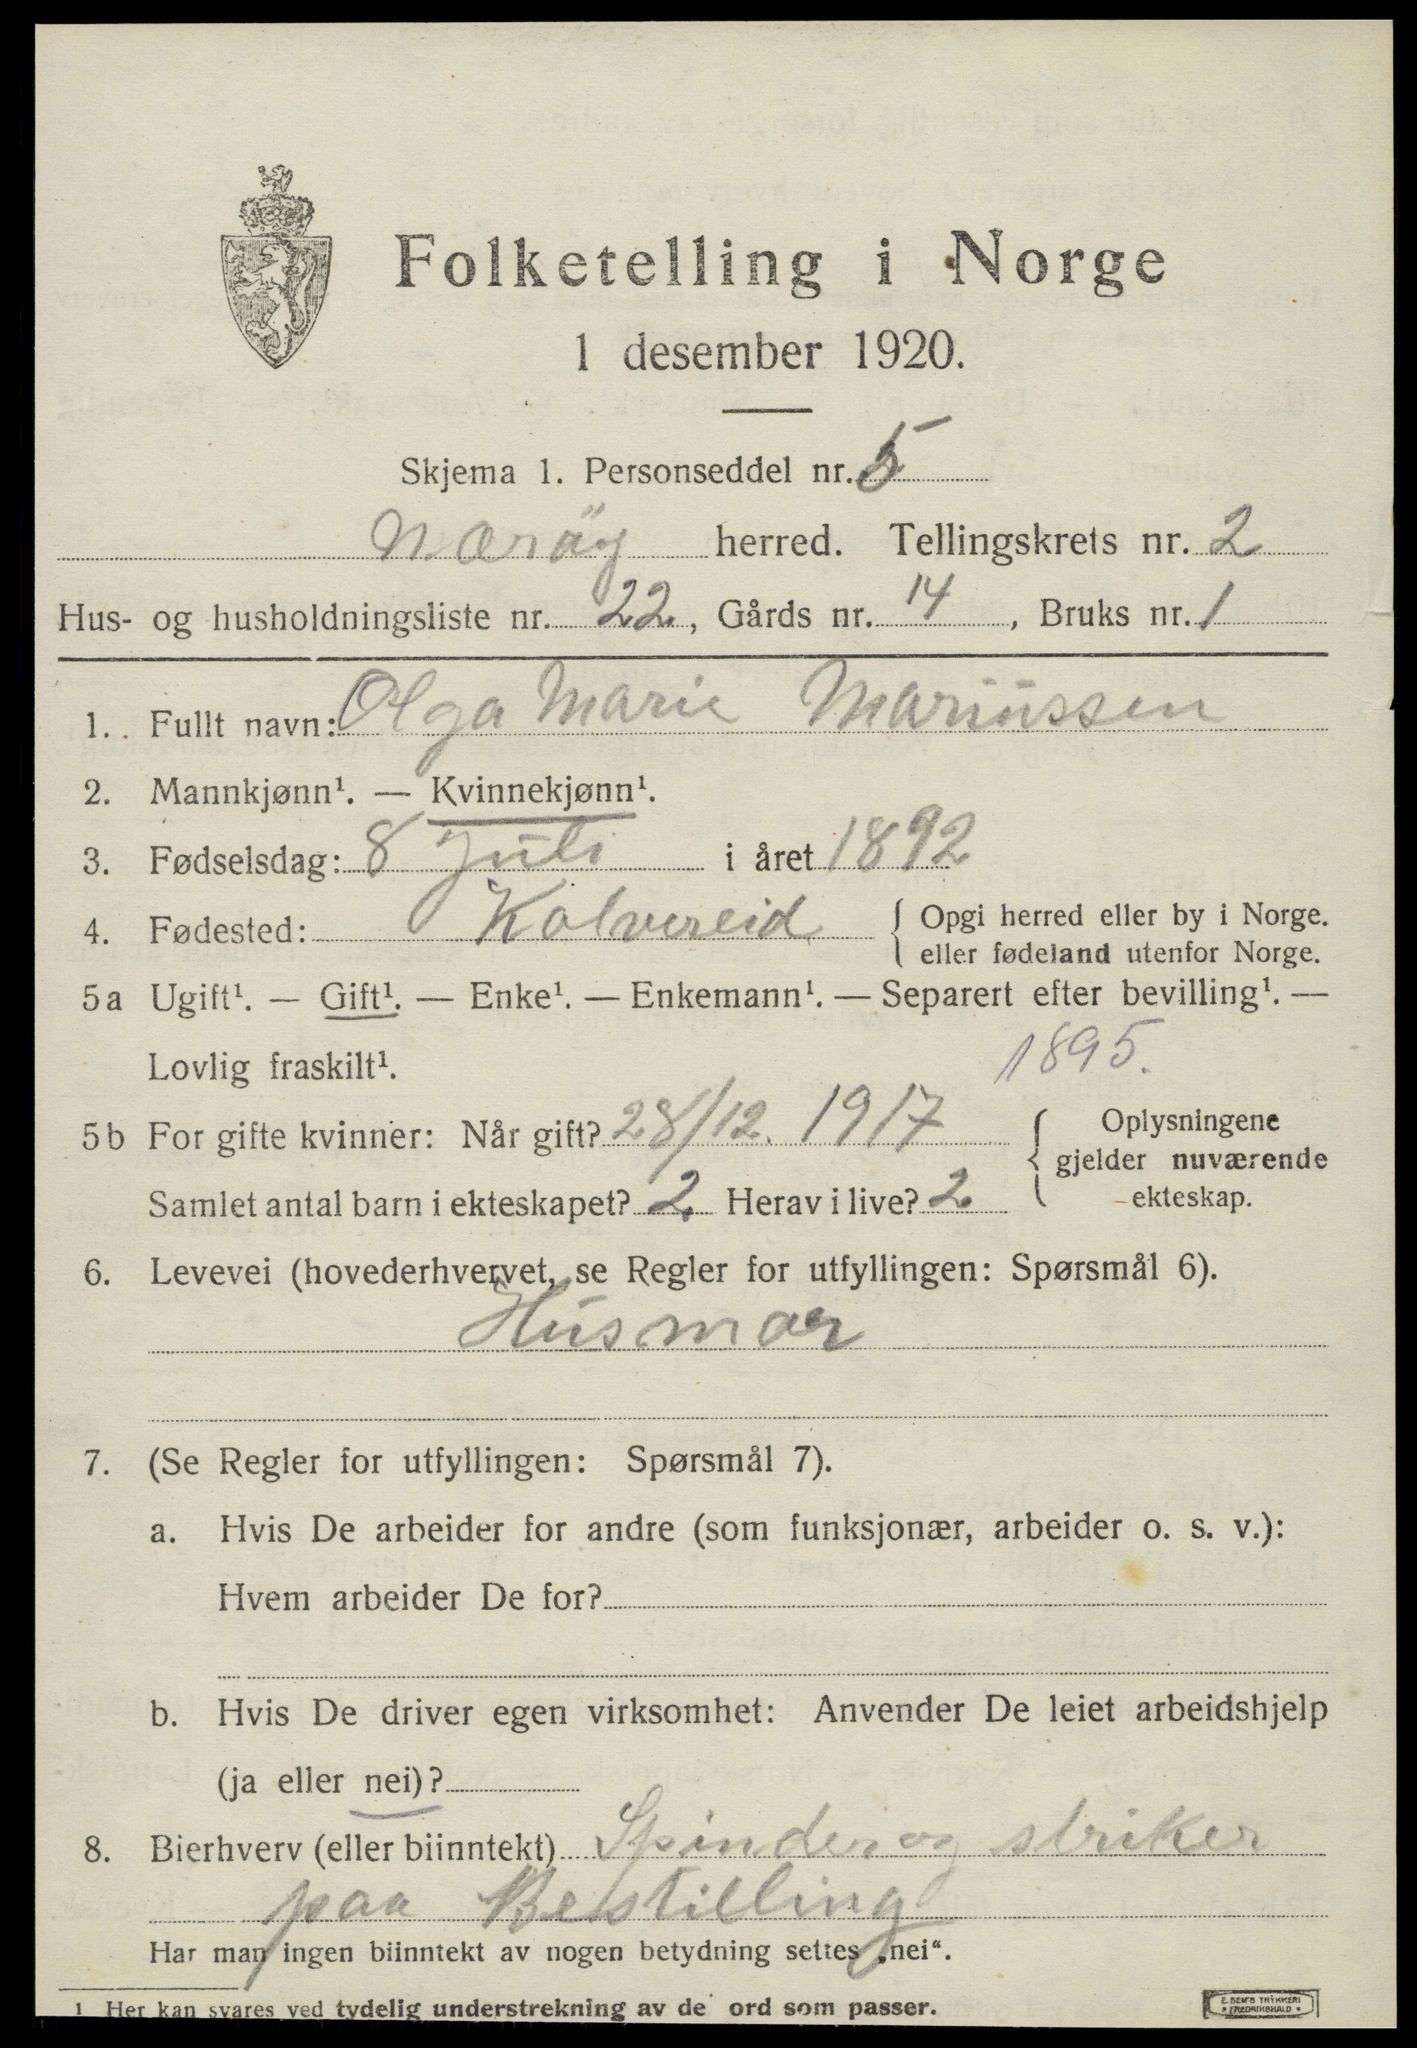 Folketelling i Norge
1 desember 1920.
Skjema 1. Personseddel nr. 5
Nærøy herred. Tellingskrets nr. 2
Hus- og husholdningsliste nr. 22, Gårds nr. 14, Bruks nr. 1
1. Fullt navn: Olga Marie Mariussen
2. Mannkjønn¹. — Kvinnekjønn¹.
3. Fødselsdag: 8 Juli i året 1892
4. Fødested: Kolvereid { Opgi herred eller by i Norge.
eller fødeland utenfor Norge.
5 a Ugift¹. — Gift¹. — Enke¹. — Enkemann¹. — Separert efter bevilling¹. —
Lovlig fraskilt¹. 1895.
5 b For gifte kvinner: Når gift? 28/12. 1917 { Oplysningene
gjelder nuværende
Samlet antal barn i ekteskapet? 2. Herav i live? 2 ekteskap.
6. Levevei (hovederhvervet, se Regler for utfyllingen: Spørsmål 6).
Husmor
7. (Se Regler for utfyllingen: Spørsmål 7).
a. Hvis De arbeider for andre (som funksjonær, arbeider o. s. v.):
Hvem arbeider De for?
b. Hvis De driver egen virksomhet: Anvender De leiet arbeidshjelp
(ja eller nei)?
8. Bierhverv (eller biinntekt) Spinder og striker
paa Bestilling
Har man ingen biinntekt av nogen betydning settes „nei“.
¹ Her kan svares ved tydelig understrekning av de ord som passer.
E. SEM'S TRYKKERI
FREDRIKSHALD